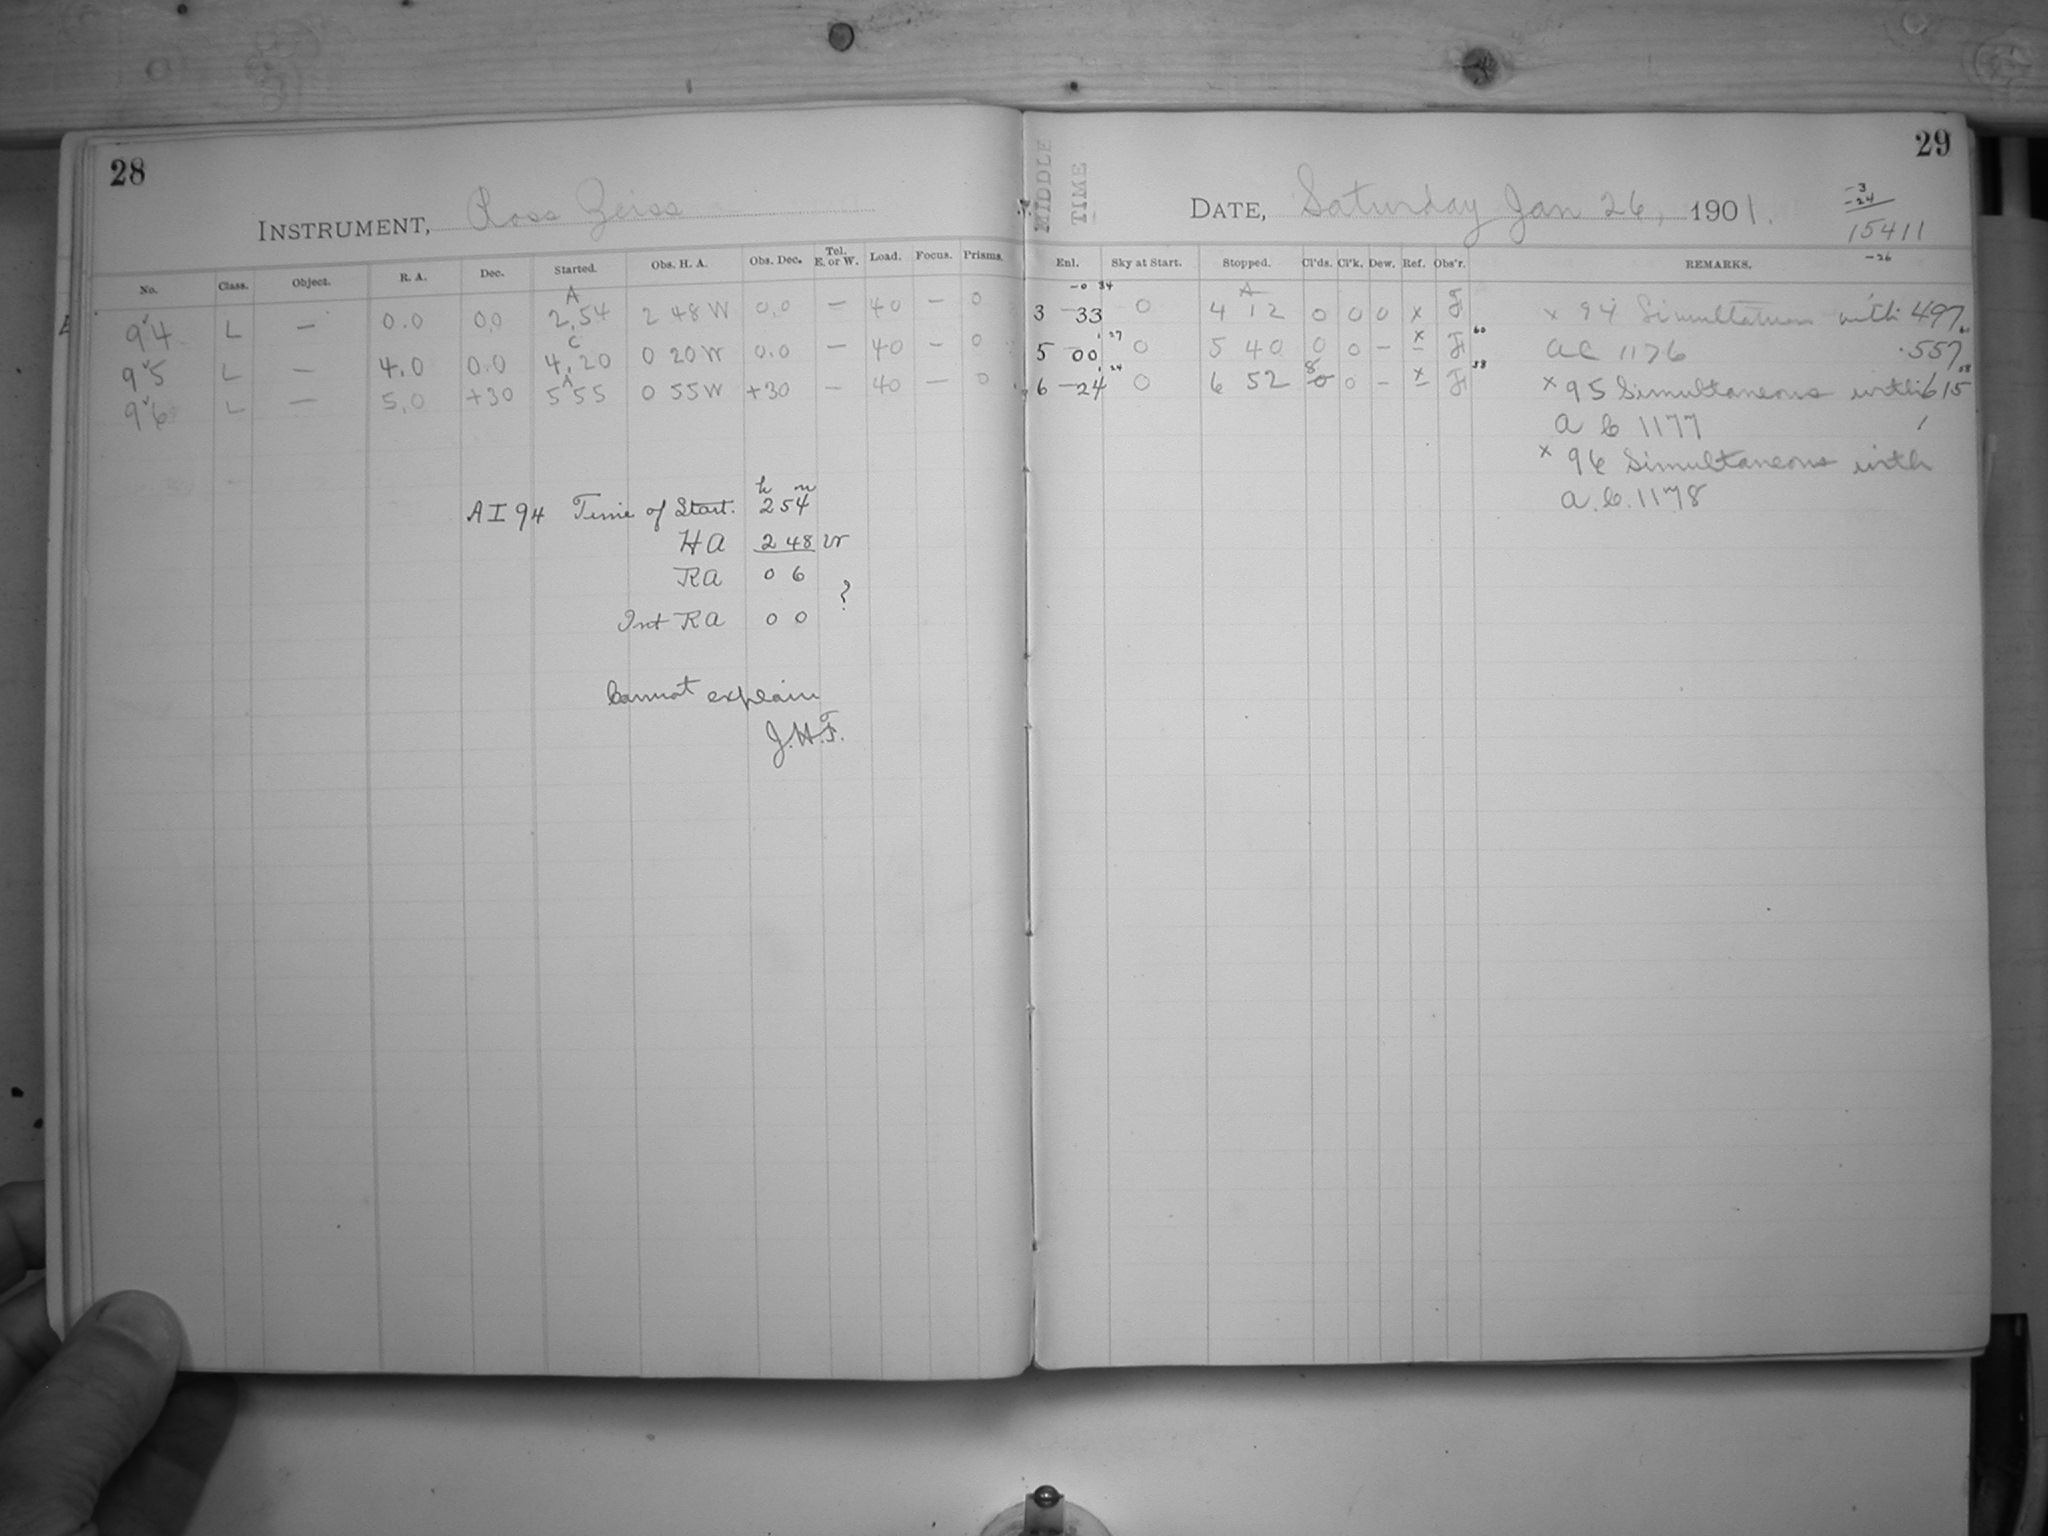 28
INSTRUMENT, Ross Zeiss
No. Class. Object. R. A. Dec. Started. Obs. H. A. Obs. Dec. Tel. E. or W. Load. Focus. Prisms.
94 L — 0.0 0.0 A 2.54 2 48 W 0.0 — 40 — 0
95 L — 4.0 0.0 C 4.20 0 20 W 0.0 — 40 — 0
96 L — 5.0 +30 A 5 55 0 55 W +30 — 40 — 0
h m
A I 94 Time of Start. 2 54
H A 2 48 W
R A 0 6
?
Int R A 0 0
Cannot explain
J.H.F.
29
MIDDLE
TIME
DATE, Saturday Jan 26, 1901.
-3
-24
15411
-26
Enl. Sky at Start. Stopped. Cl'ds. Cl'k. Dew. Ref. Obs'r. REMARKS.
3 33 0 A 4 12 0 0 0 x F x 94 Simultaneous with 497
5 00 0 5 40 0 0 — x F 60 AC 1176 557
6 24 0 6 52 8 0 — x F 58 x 95 Simultaneous with 615
a C 1177
x 96 Simultaneous with
a. C. 1178